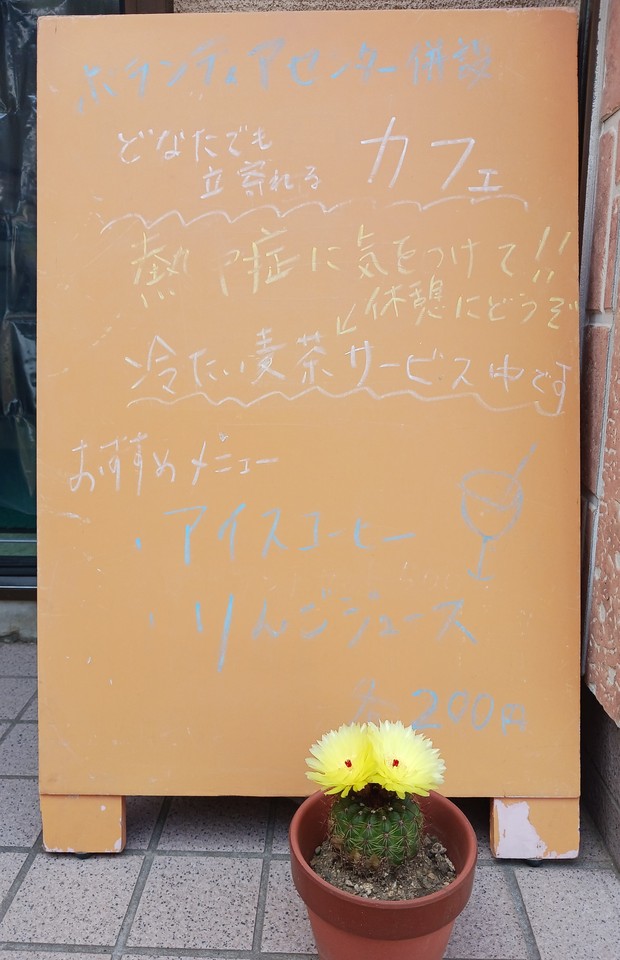 ボランティアセンター併設
どなたでも
立寄れる カフェ
熱中症に気をつけて!!
↙休憩にどうぞ
冷たい麦茶サービス中です
おすすめメニュー
・アイスコーヒー
・りんごジュース
各200円